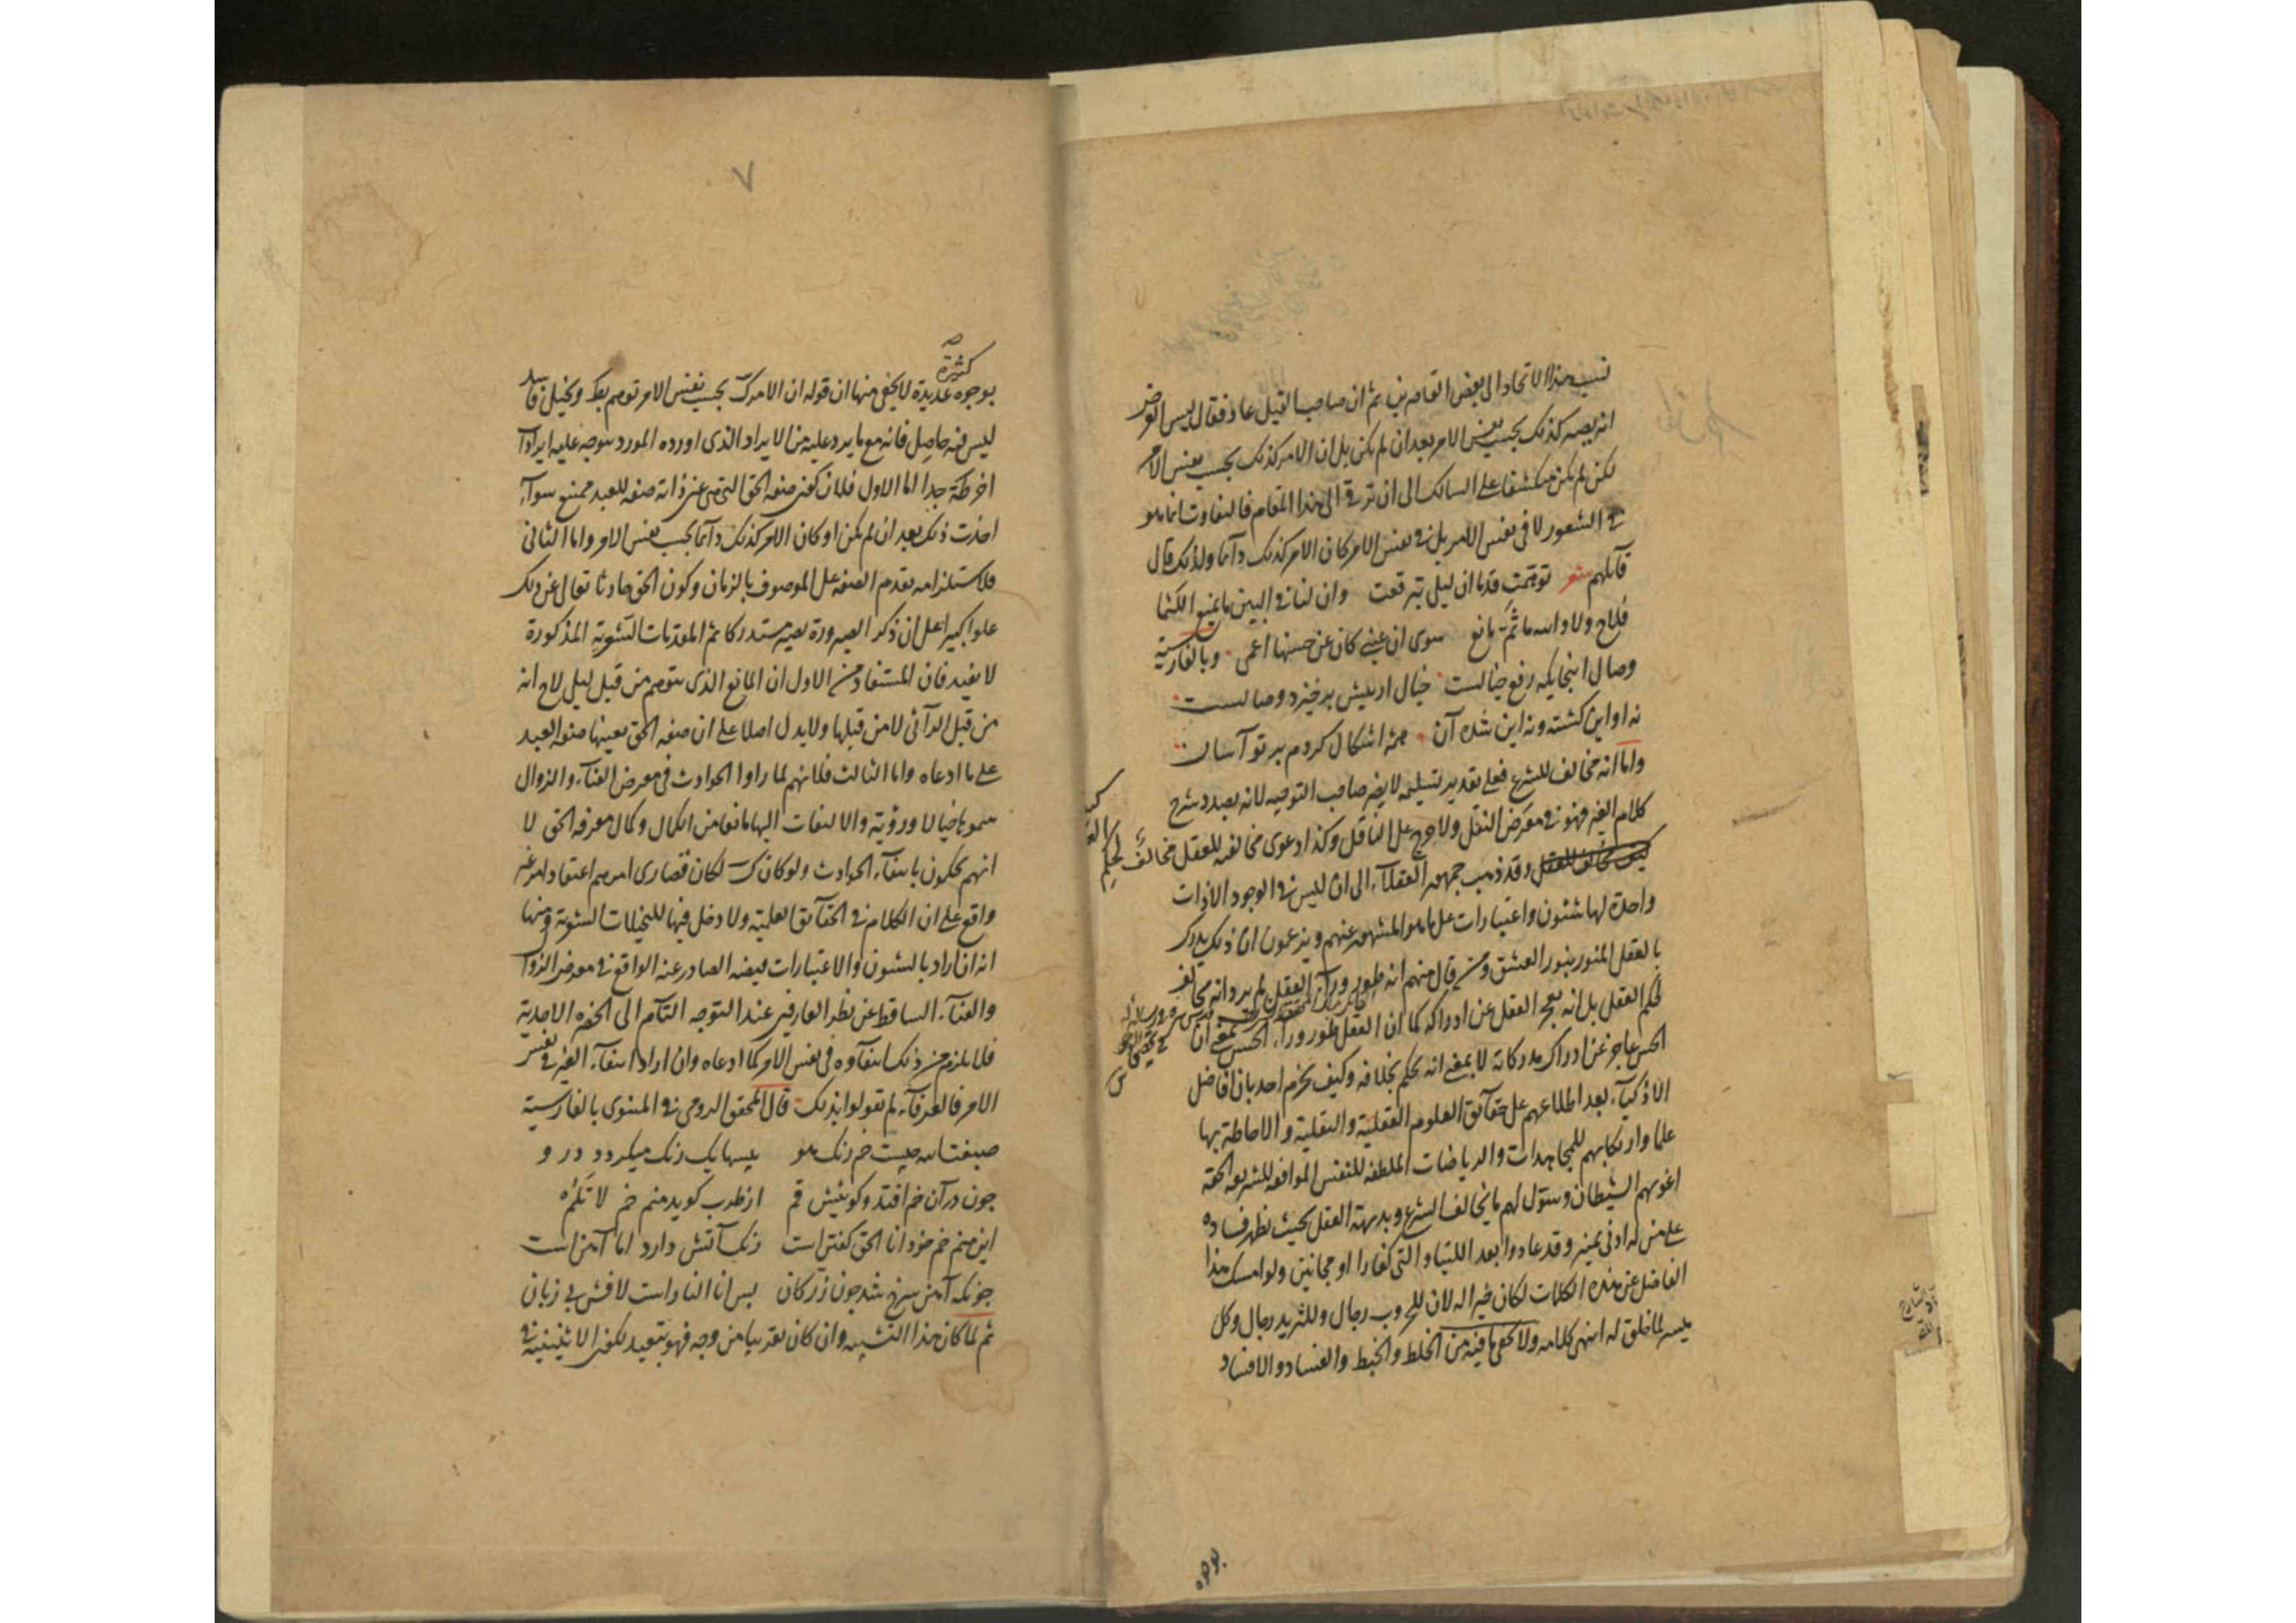 نسب هذا الاتحاد الى بعض القاصرين ثم ان صاحب القيل عاد فقال ليس الغرض
انه يصير كذلك بحسب نفس الامر بعد ان لم يكن بل ان الامر كذلك بحسب نفس الامر
لكن لم يكن منكشفا على السالك الى ان ترقى الى هذا المقام فالتفاوت انما هو
في الشعور لا في نفس الامر بل في نفس الامر كان الامر كذلك دائما ولذلك قال
قائلهم شعر توهمت قدما ان ليلى تبرقعت وان لنا في البين ما يمنع اللثما
فلاح ولا والله ما ثم مانع سوى ان عيني كان عن حسنها اعمى وبالفارسية
وصال اينجايكه رفع خيالست خيال از پيش برخيزد وصالست
نه او اين كشته ونه اين شده آن همه اشكال كردم بر تو آسان
واما انه مخالف للشرع فعلى تقدير تسليمه لا يضر صاحب التوجيه لانه بصدد شرح
كلام الغير فهو في معرض النقل ولا حرج على الناقل وكذا دعوى مخالفته للعقل
وقد ذهب جمهور العقلاء الى ان ليس في الوجود الا ذات
واحدة لها شئون واعتبارات على ما هو المشهور عنهم ويزعمون ان ذلك يدرك
بالعقل المنور بنور العشق ومن قال منهم انه طور وراء العقل لم يرد انه مخالف
لحكم العقل بل انه يعجز العقل عن ادراكه كما ان العقل طور وراء الحس بمعنى ان
الحس عاجز عن ادراك مدركاته لا بمعنى انه يحكم بخلافه وكيف يجزم احد بان افاضل
الاذكياء بعد اطلاعهم على حقائق العلوم العقلية والنقلية والاحاطة بها
علما وارتكابهم للمجاهدات والرياضات الملطفة للنفس الموافقة للشريعة الحقة
اغويهم الشيطان وسول لهم ما يخالف الشرع وبديهة العقل بحيث يظهر فساده
على من له ادنى تمييز وقد عادوا بعد اللتيا والتي كفارا او مجانين ولو امسك هذا
الفاضل عن هذه الكلمات لكان خيرا له لان للحروب رجال وللثريد رجال وكل
ميسر لما خلق له انتهى كلامه ولا يخفى ما فيه من الخلط والخبط والفساد والافساد
بوجوه
٧
كثيرة
بوجوه عديدة لا يخفى منها ان قوله ان الامر كك بحسب نفس الامر توهم بعد وتخيل فاسد
ليس فيه حاصل فانه مع ما يرد عليه من الايراد الذي اورده المورد يتوجه عليه ايرادات
اخر ظهرت جدا اما الاول فلان كون صفة الحق التي هي عين ذاته صفة للعبد ممتنع سواء
اخذت ذلك بعد ان لم يكن او كان الامر كذلك دائما بحسب نفس الامر واما الثاني
فلاستلزامه تقدم الصفة على الموصوف بالزمان وكون الحق حادثا تعالى عن ذلك
علوا كبيرا على ان ذكر الصيرورة يصير مستدركا ثم المقدمات الشعرية المذكورة
لا يفيد فان المستفاد من الاول ان المانع الذي يتوهم من قبل ليلى لاح انه
من قبل الرائي لا من قبلها ولا يدل اصلا على ان صفة الحق بعينها صفة العبد
على ما ادعاه واما الثالث فلانهم لما راوا الحوادث في معرض الفناء والزوال
سموها خيالا ورؤية والالتفات اليها مانعا من الكمال وكمال معرفة الحق لا
انهم يحكمون بانتفاء الحوادث ولو كان كك لكان قصارى امرهم اعتقاد امر غير
واقع على ان الكلام في الحقائق العلمية ولا دخل فيها للتخيلات الشعرية ومنها
انه ان اراد بالشئون والاعتبارات فيضه الصادر عنه الواقع في معرض الزوال
والفناء الساقط عن نظر العارفين عند التوجه التام الى الحضرة الاحدية
فلا يلزم من ذلك انتفاؤه في نفس الامر كما ادعاه وان اراد انتفاء الغير في نفس
الامر فالعرفاء لم يقولوا بذلك قال المحقق الرومى في المثنوي بالفارسية
صبغت الله چيست خم رنگ هو پيسها يك رنگ ميكردد در و
چون در آن خم افتد وكوئيش قم از طرب كويد منم خم لا تلم
اين منم خم خود انا الحق كفتن است رنك آتش دارد اما آهن است
چونكه آهن سرخ شد چون زر كان پس انا النار است لافش بى زبان
ثم لما كان هذا التشبيه وان كان تقريبا من وجه فهو تبعيد لكون الاثنينية في